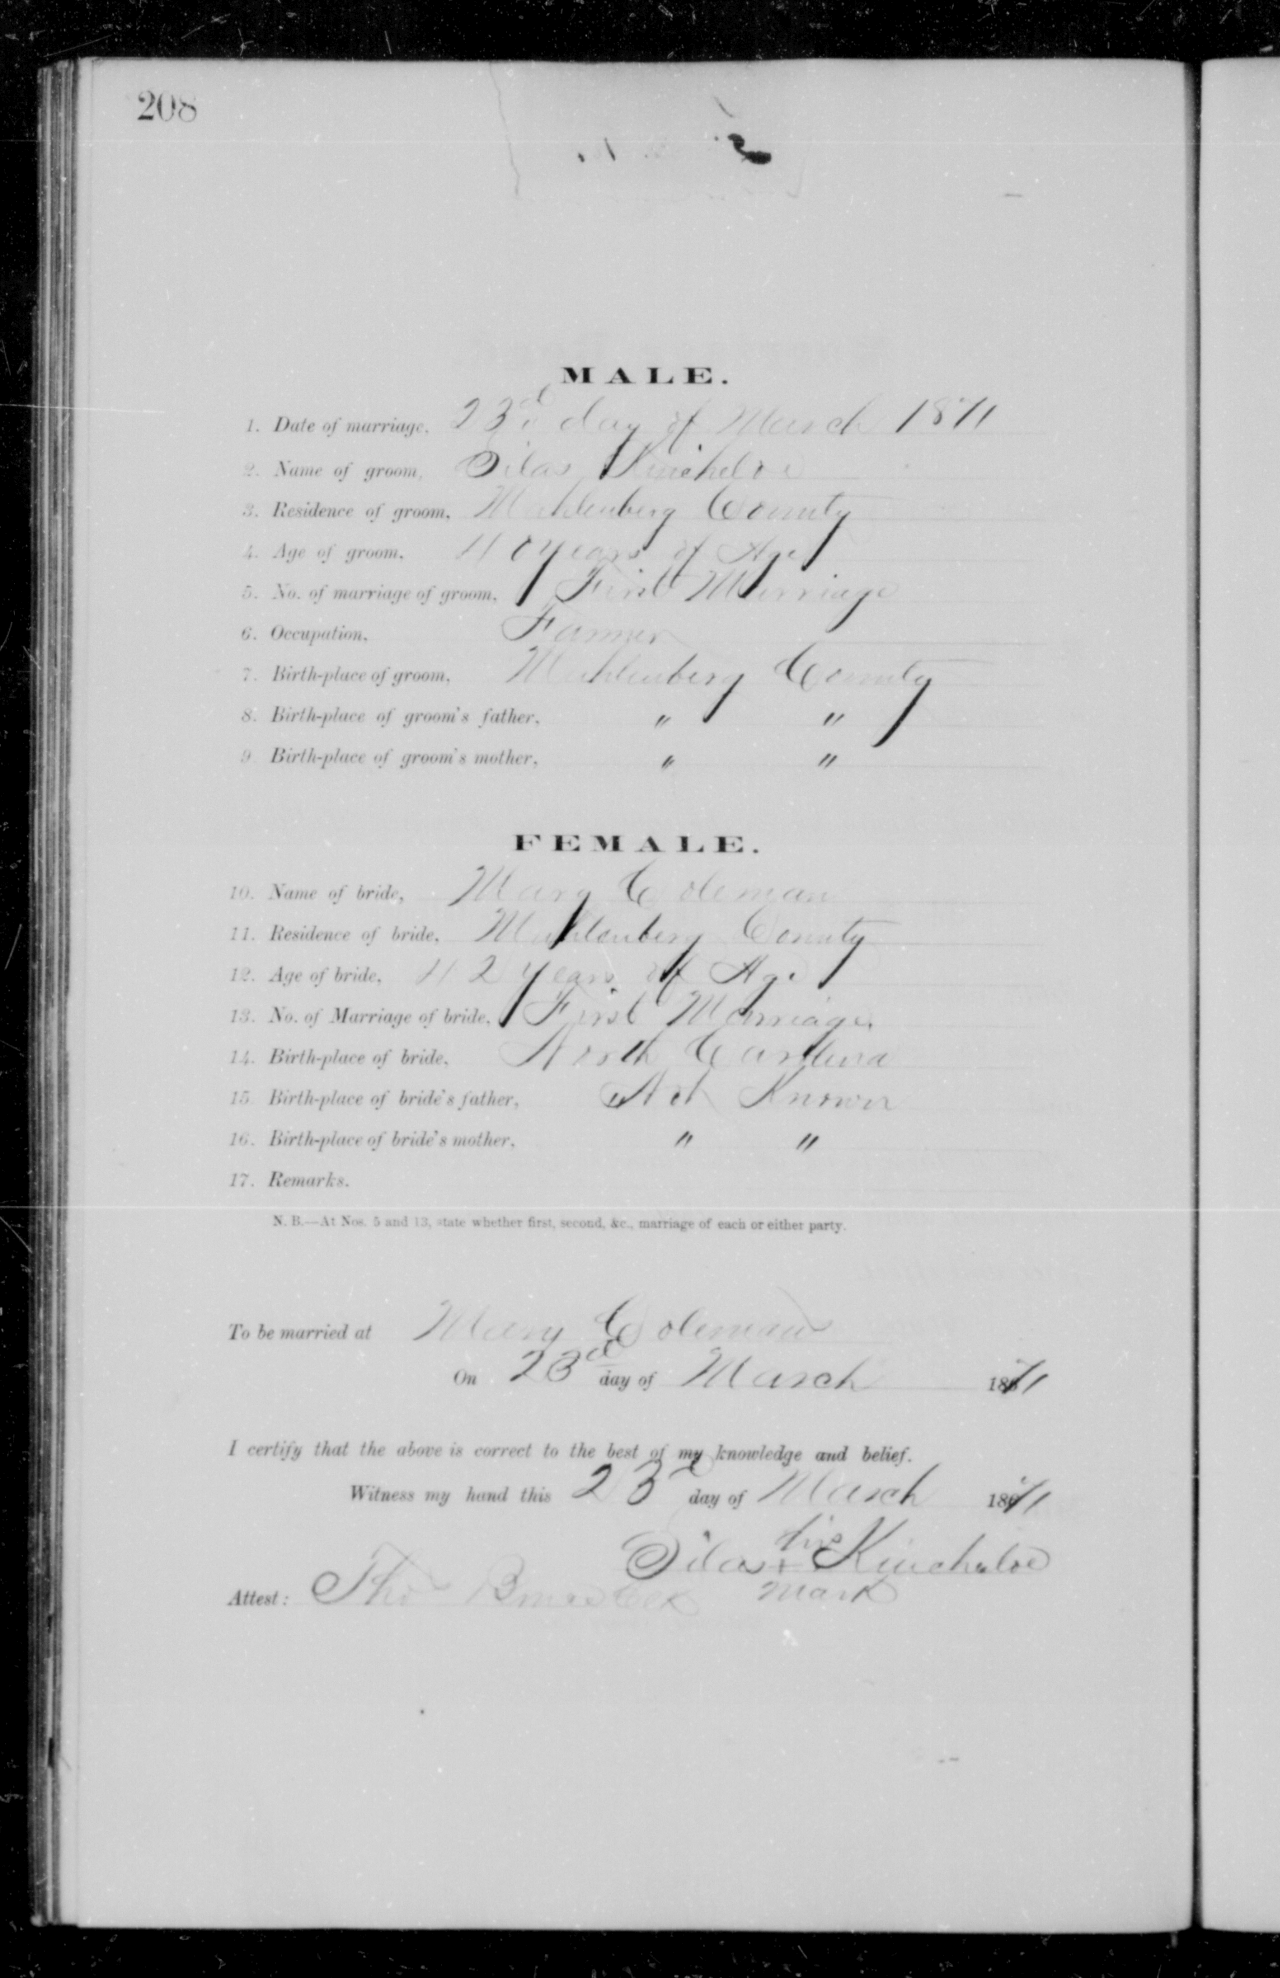 208
MALE.
1. Date of marriage, 23d day of March 1871
2. Name of groom, Silas Kincheloe
3. Residence of groom, Muhlenberg County
4. Age of groom, 40 years of Age
5. No. of marriage of groom, First Marriage
6. Occupation, Farmer
7. Birth-place of groom, Muhlenberg County
8. Birth-place of groom's father, " "
9 Birth-place of groom's mother, " "
FEMALE.
10. Name of bride, Mary Coleman
11. Residence of bride, Muhlenberg County
12. Age of bride, 42 years of Age
13. No. of Marriage of bride, First Marriage
14. Birth-place of bride, North Carolina
15. Birth-place of bride's father, Not Known
16. Birth-place of bride's mother, " "
17. Remarks.
N. B.—At Nos. 5 and 13, state whether first, second, &c., marriage of each or either party.
To be married at Mary Colemans
On 23d day of March 1871
I certify that the above is correct to the best of my knowledge and belief.
Witness my hand this 23d day of March 1871
his
Silas + Kincheloe
mark
Attest: Tho